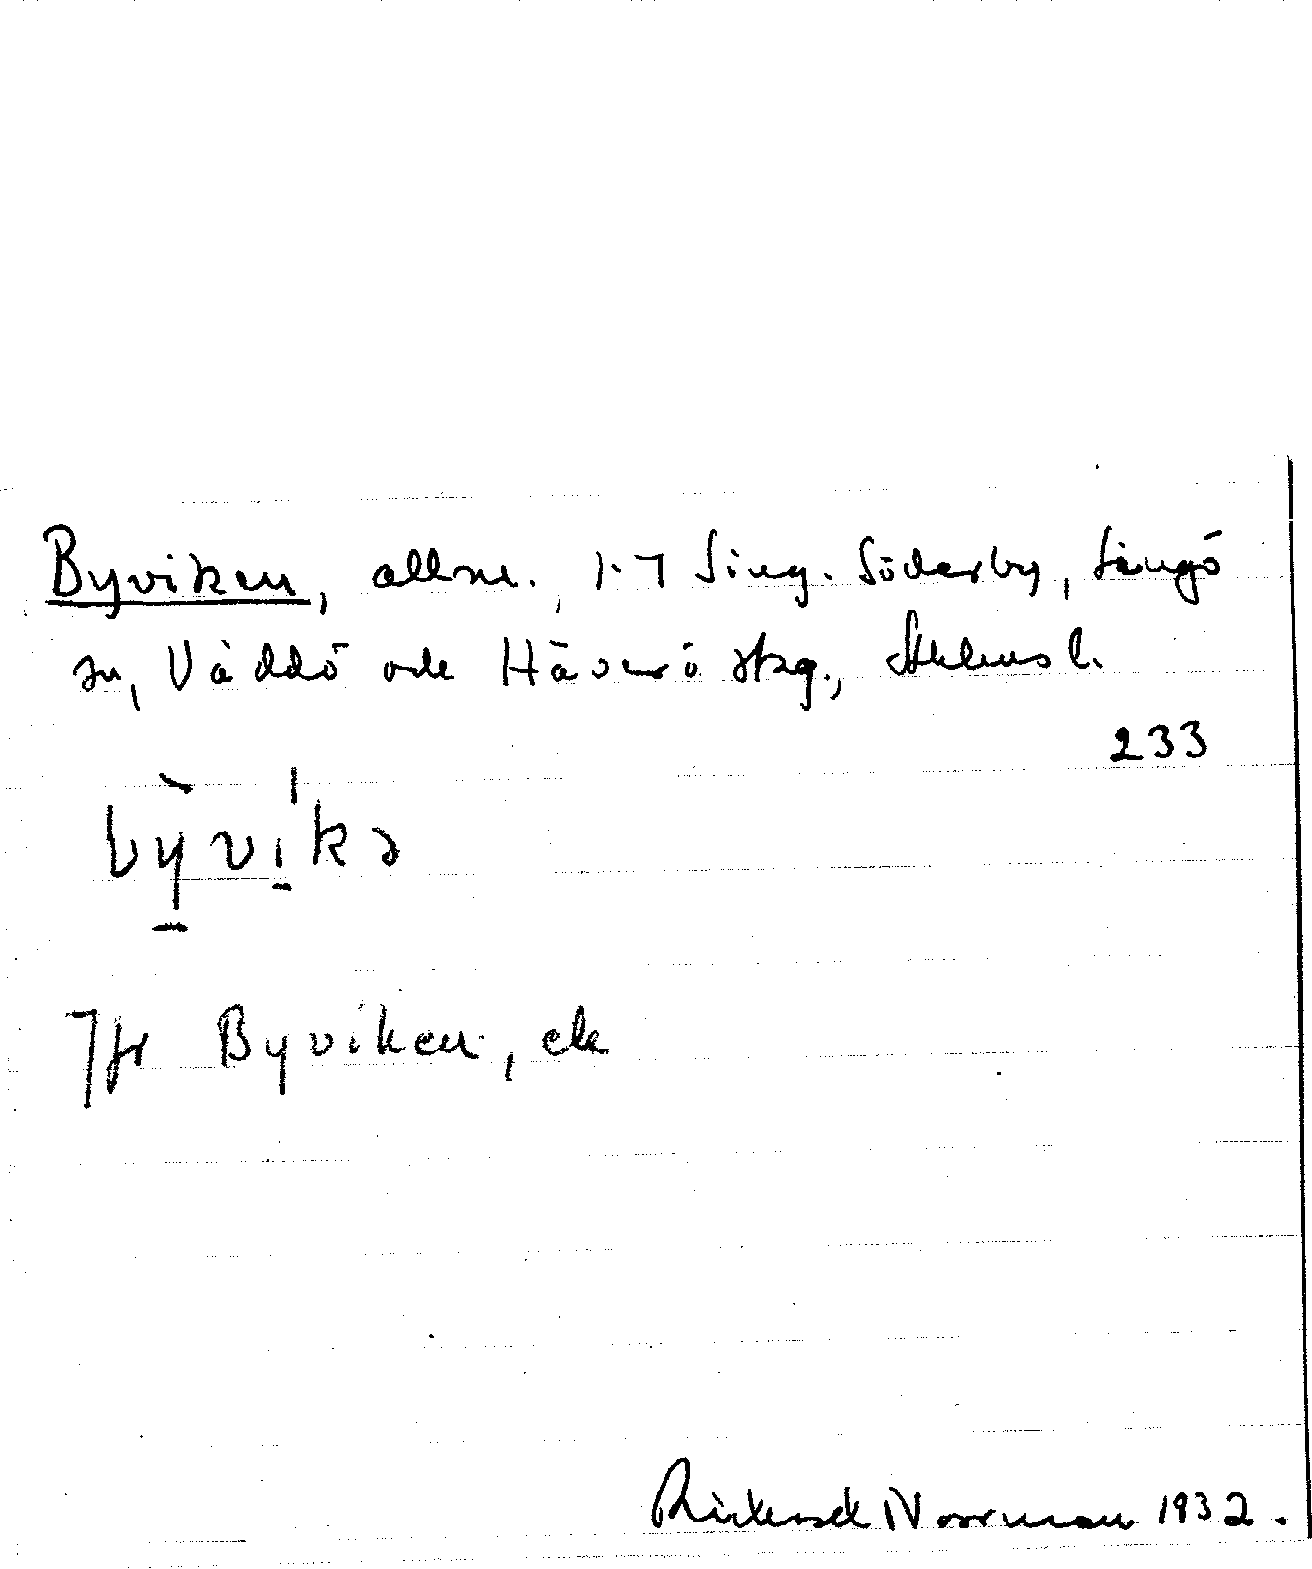 Byviken, allm., 1-7 Sing. Söderby, Singö
sn, Väddö och Häverö skg., Sthlms l.
233
bỳ̱vi̱ˈkə
Jfr Byviken, ek
Rickard Norrman 1932.